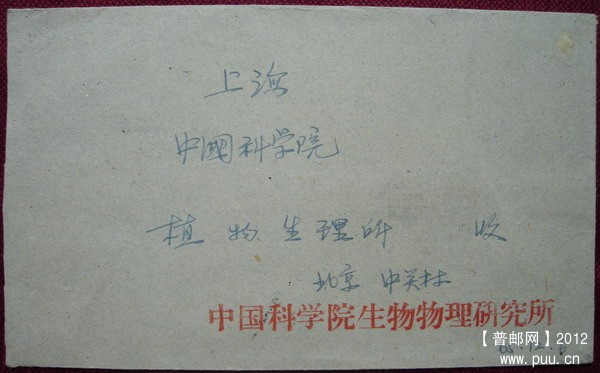 上海
中國科学院
植物生理所 收
北京 中关村
中国科学院生物物理研究所
【普邮网】2012
www.puu.cn